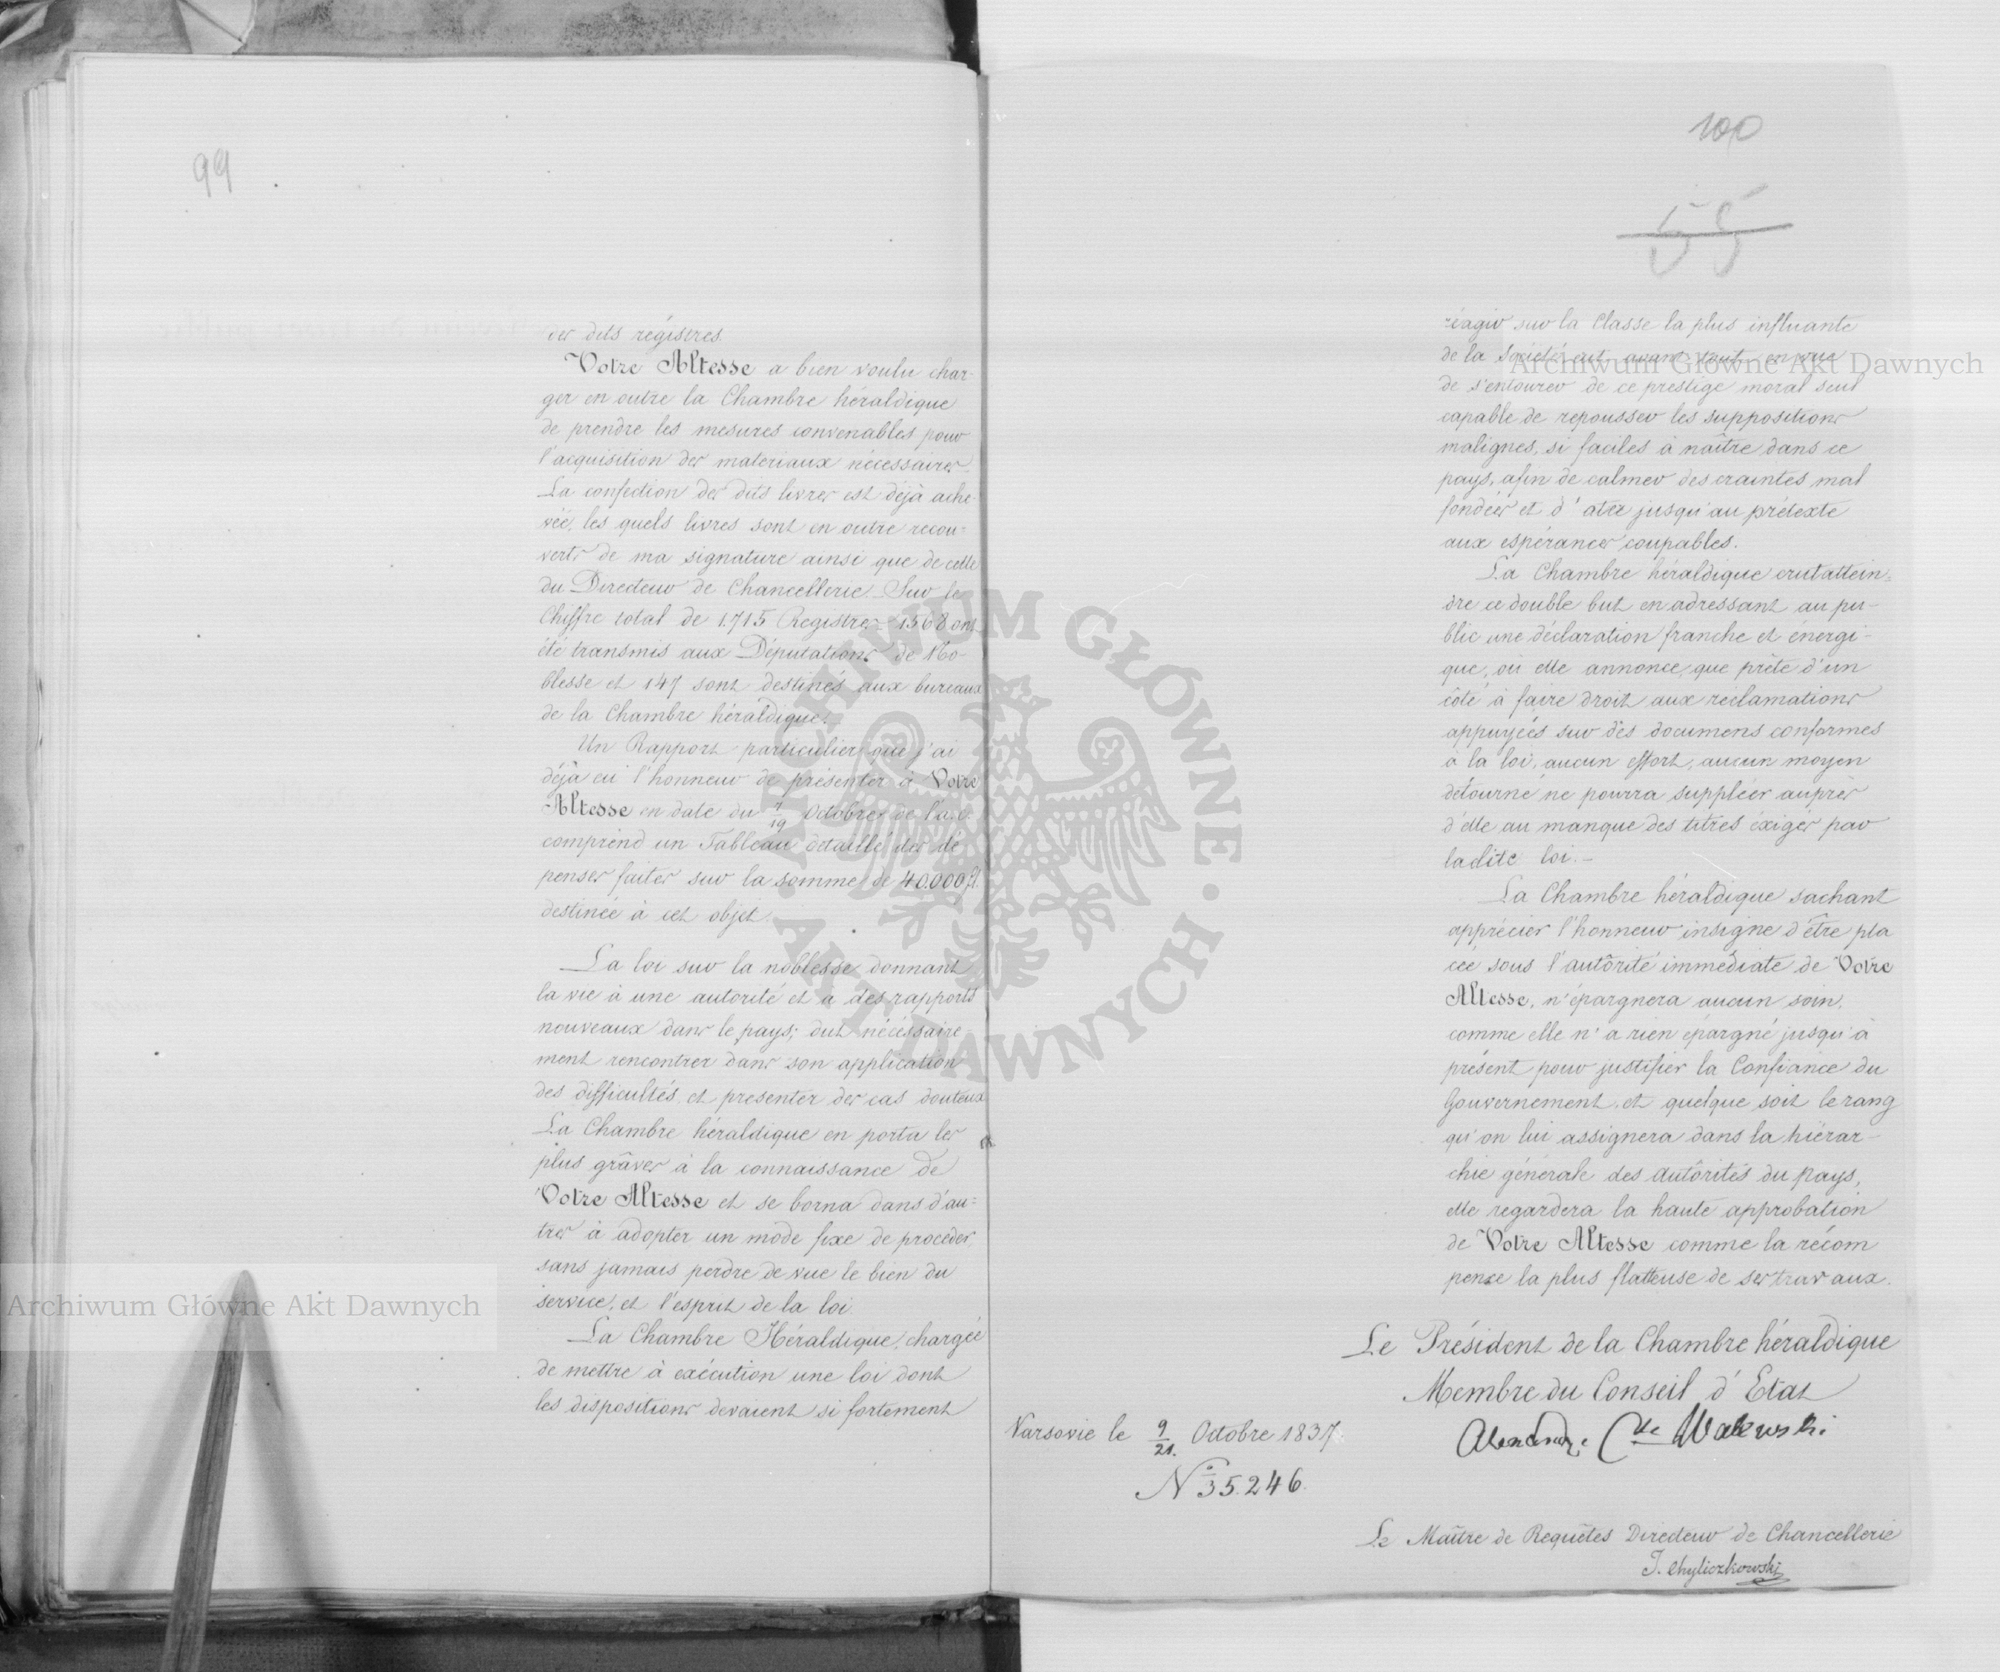 99
des dits régistres.
Votre Altesse a bien voulu char-
ger en outre la Chambre héraldique
de prendre les mesures convenables pour
l'acquisition des materiaux nécessaires.
La confection des dits livres est déjà ache-
vée, les quels livres sont en outre recou=
verts de ma signature ainsi que de celle
du Directeur de Chancellerie. Sur le
Chiffre total de 1.715 Registres 1568 ont
été transmis aux Députations de No-
blesse et 147 sont destinés aux bureaux
de la Chambre héraldique.
Un Rapport particulier que j'ai
déjà eu l'honneur de présenter à Votre
Altesse en date du 7/19 Octobre de l'a. c.
comprend un Tableau détaillé des dé
penses faites sur la somme de 40.000 fl.
destinée à cet objet.
La loi sur la noblesse donnant
la vie à une autorité et a des rapports
nouveaux dans le pays; dut nécéssaire-
ment rencontrer dans son application
des difficultés, et presenter des cas douteux
La Chambre héraldique en porta les
plus grâves à la connaissance de
Votre Altesse et se borna dans d'au=
tres à adopter un mode fixe de proceder,
sans jamais perdre de vue le bien du
service, et l'esprit de la loi
La Chambre Héraldique, chargée
de mettre à exécution une loi dont
les dispositions devaient si fortement
100
55
réagir sur la Classe la plus influante
de la Société eut avant tout en vue
de s'entourer de ce prestige moral seul
capable de repousser les suppositions
malignes, si faciles à naître dans ce
pays, afin de calmer des craintes mal
fondées et d'ater jusqu'au prétexte
aux espérances coupables.
La Chambre héraldique crut attein=
dre ce double but en adressant au pu-
blic une déclaration franche et énergi-
que, où elle annonce, que prête d'un
côté à faire droit aux réclamations
appuyées sur dès documens conformes
à la loi, aucun effort, aucun moyen
détourné ne pourra suppléer auprès
d'elle au manque des titres éxiges par
ladite loi.-
La Chambre héraldique sachant
apprécier l'honneur insigne d'être pla
cée sous l'autôrité immédiate de Votre
Altesse, n'épargnera aucun soin,
comme elle n'a rien épargné jusqu'à
présent pour justifier la Confiance du
Gouvernement, et quelque soit le rang
qu'on lui assignera dans la hiérar-
chie générale des autôrités du pays,
elle regardera la haute approbation
de Votre Altesse comme la récom
pense la plus flatteuse de ses travaux.
Le Président de la Chambre héraldique
Membre du Conseil d'Etat
Alexandre Cte Walewski
Varsovie le 9/21. Octobre 1837.
No 35.246.
Le Maître de Requêtes Directeur de Chancellerie
J. Chyliczkowski
Archiwum Główne Akt Dawnych
Archiwum Główne Akt Dawnych
Archiwum Główne Akt Dawnych
ARCHIWUM GŁÓWNE · AKT DAWNYCH ·